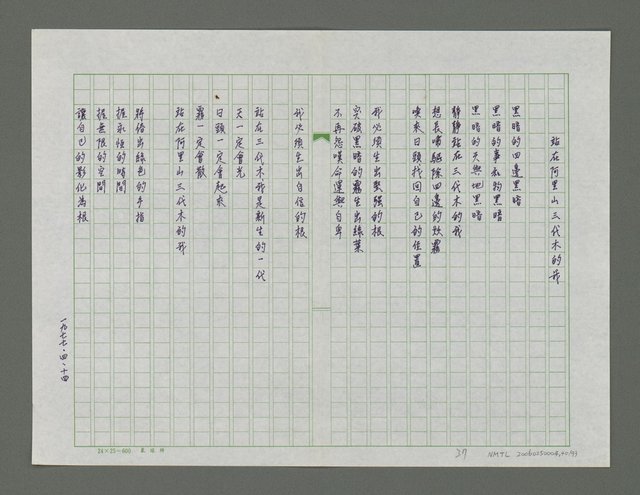 站在阿里山三代木的我
黑暗的四邊黑暗
黑暗的事物黑暗
黑暗的天與地黑暗
靜靜站在三代木的我
想長嘯驅除四邊的
喚來日頭找回自己的位置
我必須生出堅強的根
突破黑暗的霧生出綠葉
不再怨嘆命運與自卑
我必須生出自信的根
站在三代木我是新生的一代
天一定會光
日頭一定會起來
霧一定會散
站在阿里山三代木的我
將伸出綠色的手指
握永恆的時間
握無限的空間
讓自己的影化為根
一九七七・四・十四
24×25=600
37
NMTL 20060250008,40/93